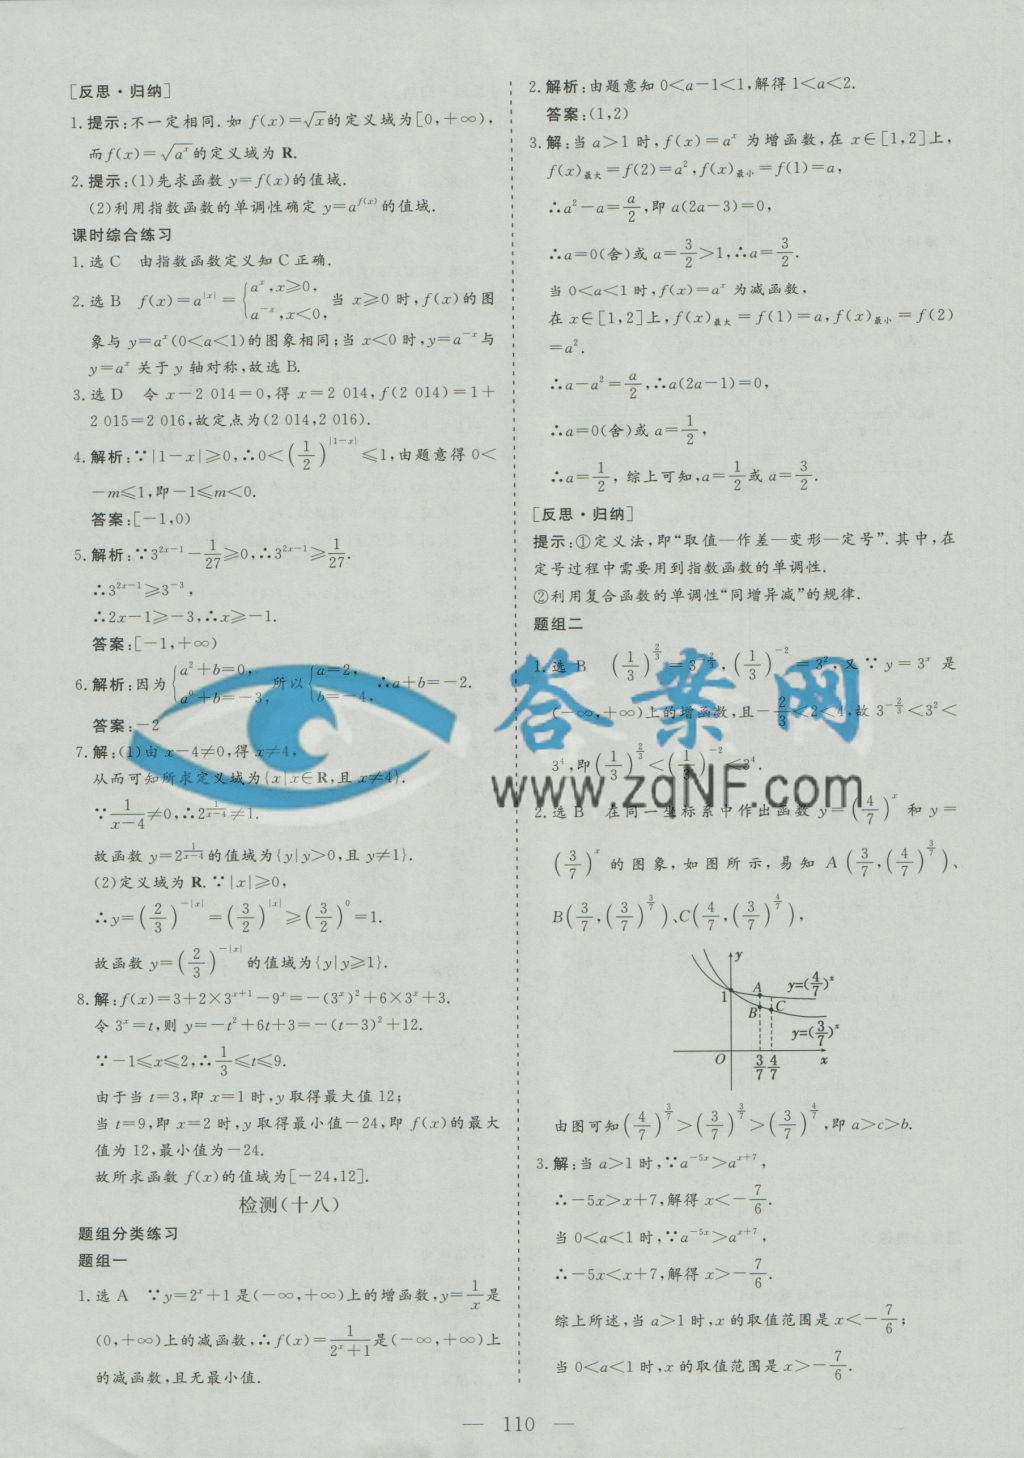 [反思·归纳]
1.提示:不一定相同.如 f(x)=√x的定义域为[0,+∞),
而f(x)=√(aˣ)的定义域为 R.
2.提示:(1)先求函数 y=f(x)的值域.
(2)利用指数函数的单调性确定 y=a^{f(x)}的值域.
课时综合练习
1.选 C 由指数函数定义知 C 正确.
2.选 B f(x)=a^{|x|}={aˣ,x≥0, a^{-x},x<0, 当 x≥0 时,f(x)的图
象与 y=aˣ(0<a<1)的图象相同;当 x<0 时,y=a^{-x}与
y=aˣ 关于 y 轴对称,故选 B.
3.选 D 令 x-2 014=0,得 x=2 014,f(2 014)=1+
2 015=2 016,故定点为(2 014,2 016).
4.解析:∵|1-x|≥0,∴0<(1/2)^{|1-x|}≤1,由题意得 0<
-m≤1,即-1≤m<0.
答案:[-1,0)
5.解析:∵3^{2x-1}-1/27≥0,∴3^{2x-1}≥1/27.
∴3^{2x-1}≥3^{-3},
∴2x-1≥-3,∴x≥-1.
答案:[-1,+∞)
6.解析:因为{a²+b=0, a⁰+b=-3, 所以{a=2, b=-4, ∴a+b=-2.
答案:-2
7.解:(1)由 x-4≠0,得 x≠4,
从而可知所求定义域为{x|x∈R,且 x≠4}.
∵1/(x-4)≠0,∴2^{1/(x-4)}≠1.
故函数 y=2^{1/(x-4)}的值域为{y|y>0,且 y≠1}.
(2)定义域为 R.∵|x|≥0,
∴y=(2/3)^{-|x|}=(3/2)^{|x|}≥(3/2)⁰=1.
故函数 y=(2/3)^{-|x|}的值域为{y|y≥1}.
8.解:f(x)=3+2×3^{x+1}-9ˣ=-(3ˣ)²+6×3ˣ+3.
令 3ˣ=t,则 y=-t²+6t+3=-(t-3)²+12.
∵-1≤x≤2,∴1/3≤t≤9.
由于当 t=3,即 x=1 时,y 取得最大值 12;
当 t=9,即 x=2 时,y 取得最小值-24,即 f(x)的最大
值为 12,最小值为-24.
故所求函数 f(x)的值域为[-24,12].
检测(十八)
题组分类练习
题组一
1.选 A ∵y=2ˣ+1 是(-∞,+∞)上的增函数,y=1/x是
(0,+∞)上的减函数,∴f(x)=1/(2ˣ+1)是(-∞,+∞)上
的减函数,且无最小值.
2.解析:由题意知 0<a-1<1,解得 1<a<2.
答案:(1,2)
3.解:当 a>1 时,f(x)=aˣ 为增函数,在 x∈[1,2]上,
f(x)最大=f(2)=a²,f(x)最小=f(1)=a,
∴a²-a=a/2,即 a(2a-3)=0,
∴a=0(舍)或 a=3/2>1,∴a=3/2.
当 0<a<1 时,f(x)=aˣ 为减函数,
在 x∈[1,2]上,f(x)最大=f(1)=a,f(x)最小=f(2)
=a².
∴a-a²=a/2,∴a(2a-1)=0,
∴a=0(舍)或 a=1/2,
∴a=1/2, 综上可知,a=1/2或 a=3/2.
[反思·归纳]
提示:①定义法,即“取值—作差—变形—定号”.其中,在
定号过程中需要用到指数函数的单调性.
②利用复合函数的单调性“同增异减”的规律.
题组二
1.选 B (1/3)^{2/3}=3^{-2/3},(1/3)^{-2}=3²,又∵y=3ˣ 是
(-∞,+∞)上的增函数,且-2/3<2<4,故 3^{-2/3}<3²<
3⁴,即(1/3)^{2/3}<(1/3)^{-2}<3⁴.
答案网
www.zqNF.com
2.选 B 在同一坐标系中作出函数 y=(4/7)ˣ 和 y=
(3/7)ˣ 的图象,如图所示,易知 A(3/7,(4/7)^{3/7})、
B(3/7,(3/7)^{3/7})、C(4/7,(3/7)^{4/7}),
y
1
A
B
C
y=(4/7)ˣ
y=(3/7)ˣ
O
3/7 4/7
x
由图可知(4/7)^{3/7}>(3/7)^{3/7}>(3/7)^{4/7},即 a>c>b.
3.解:当 a>1 时,∵a^{-5x}>a^{x+7},
∴-5x>x+7,解得 x<-7/6.
当 0<a<1 时,∵a^{-5x}>a^{x+7},
∴-5x<x+7,解得 x>-7/6.
综上所述,当 a>1 时,x 的取值范围是 x<-7/6;
当 0<a<1 时,x 的取值范围是 x>-7/6.
— 110 —